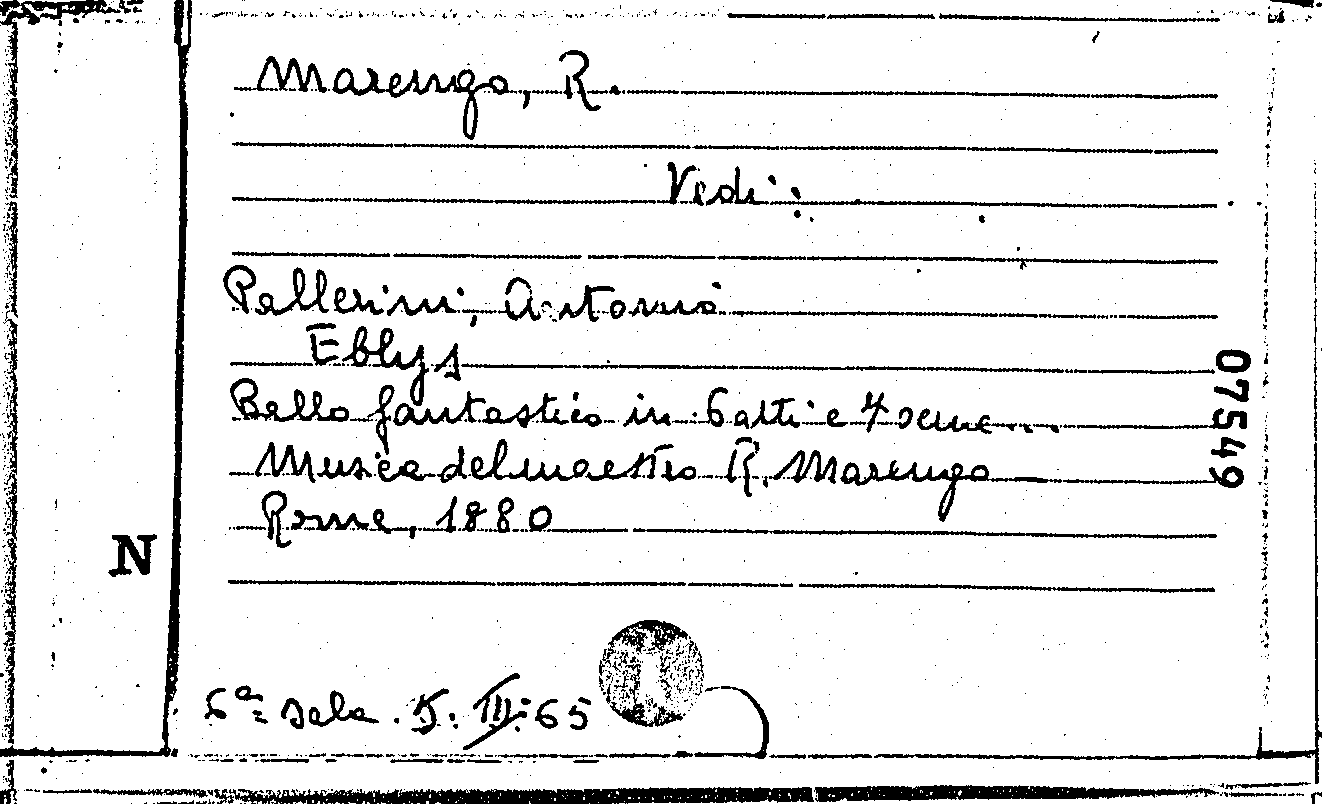 Marengo, R.
Vedi:
Pallerini, Antonio
Eblys
Ballo fantastico in 6 atti e 7 scene...
Musica del maestro R. Marengo
Roma, 1880
07549
N
6ª sala. 5. III. 65